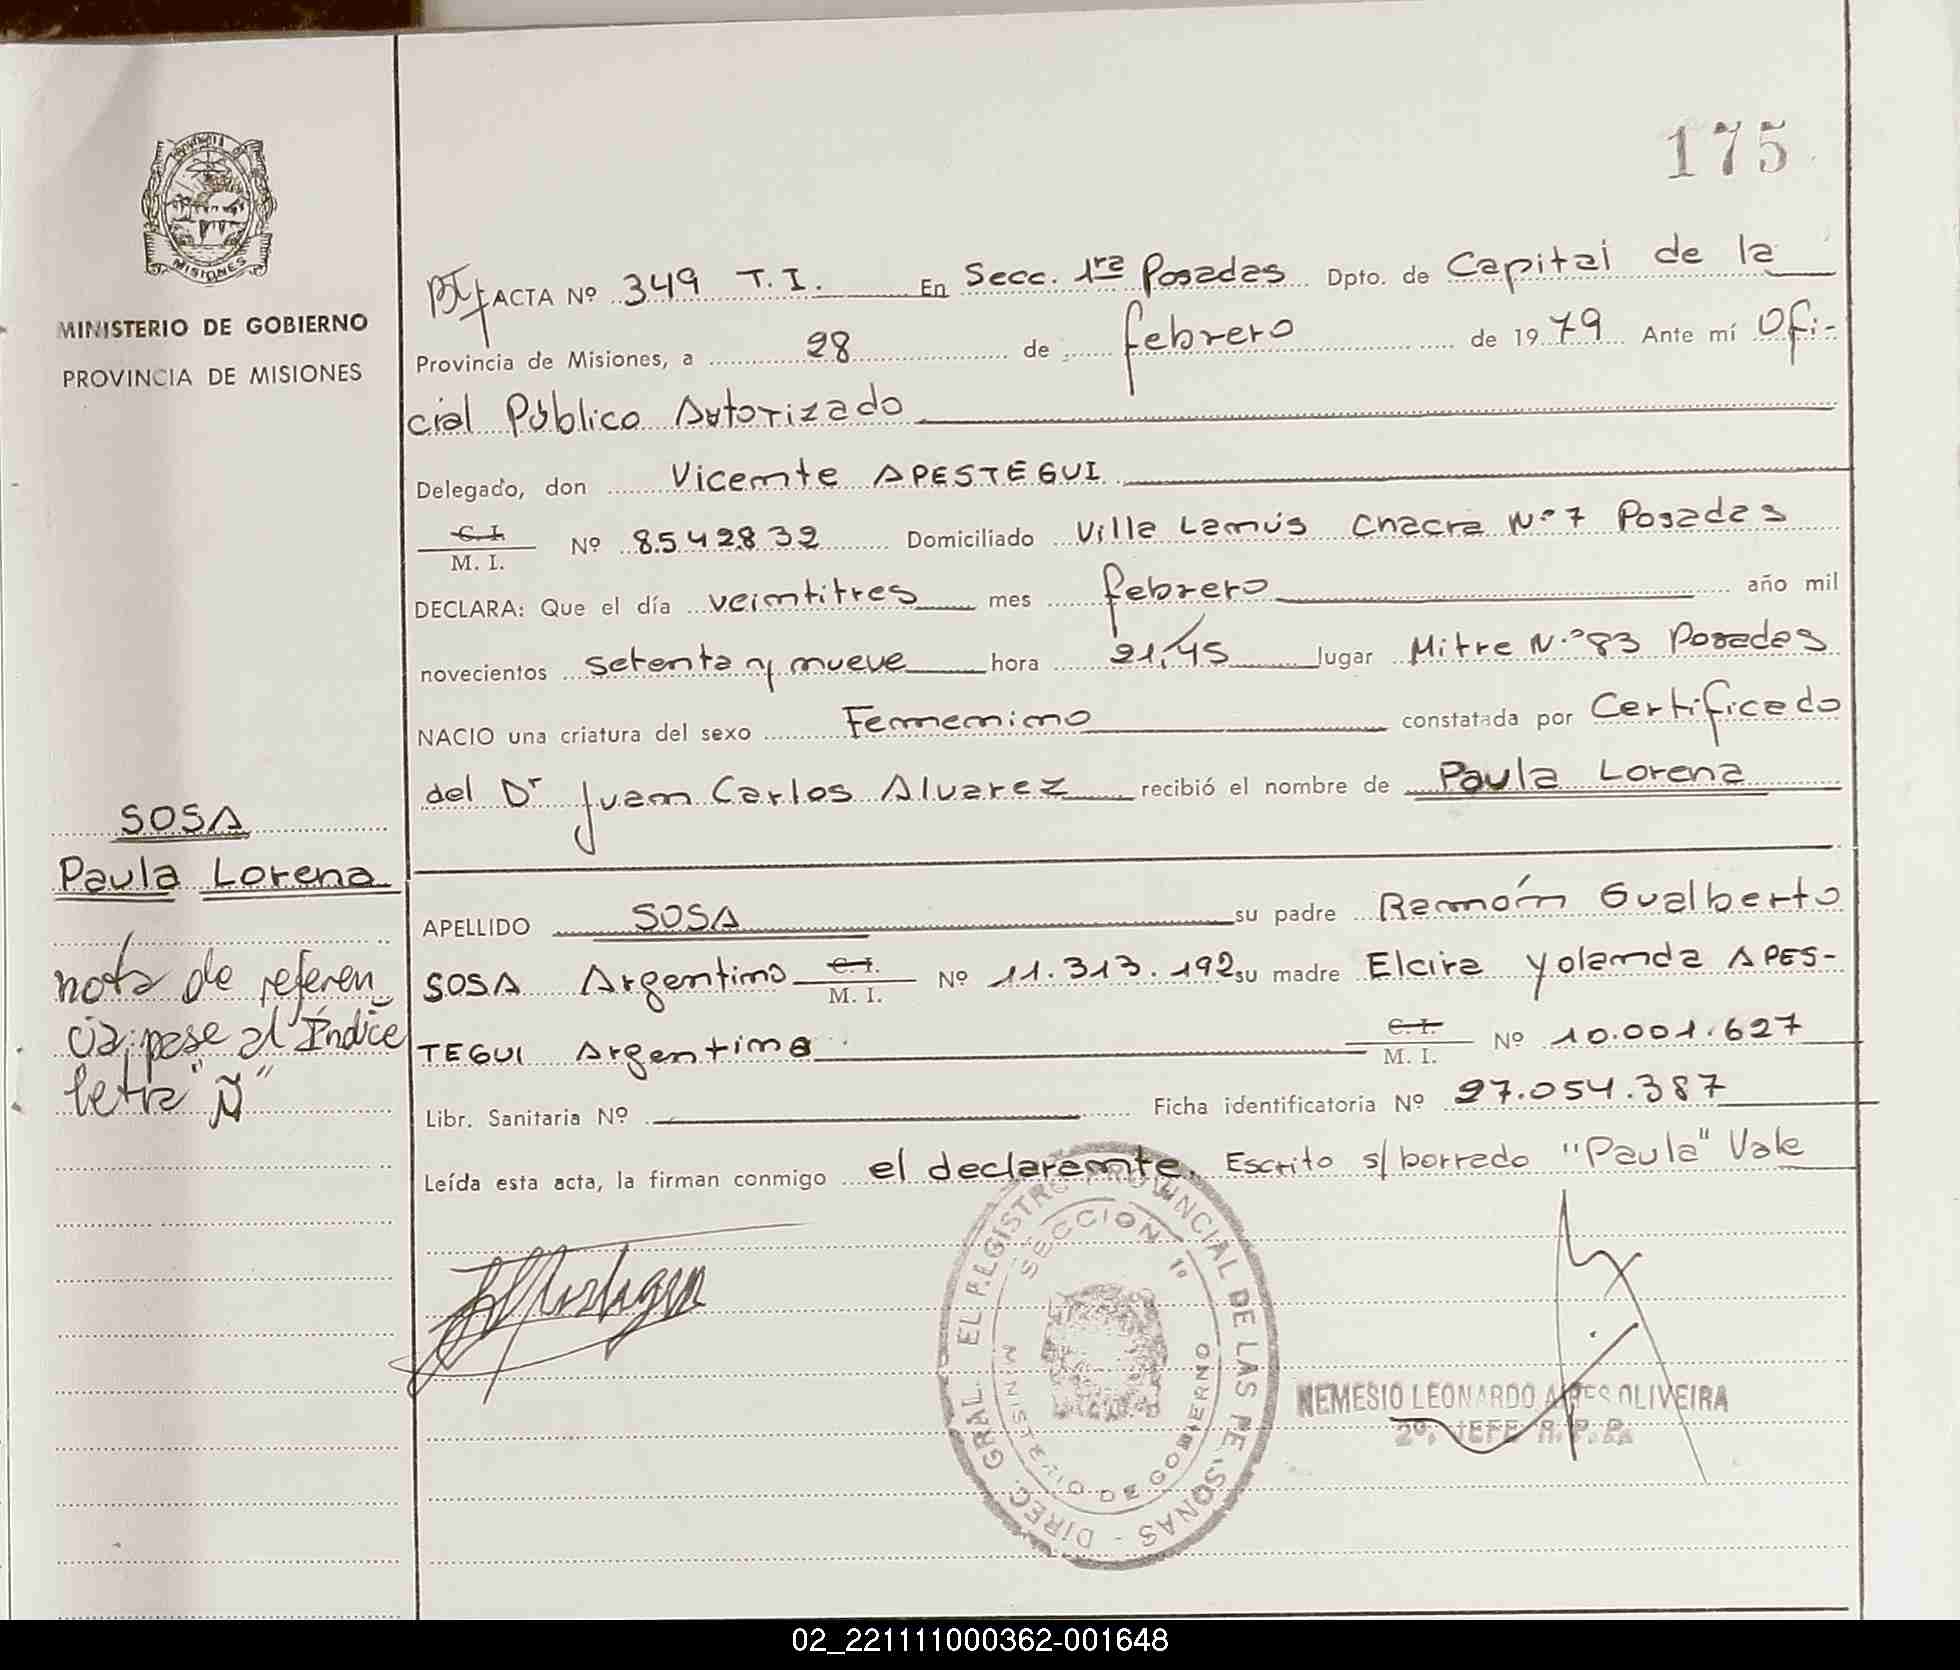 175
PROVINCIA DE
MISIONES
MINISTERIO DE GOBIERNO
PROVINCIA DE MISIONES
ACTA Nº 349 T.I. En Secc. 1ra Posadas Dpto. de Capital de la
Provincia de Misiones, a 28 de febrero de 1979 Ante mí Ofi-
cial Público Autorizado
Delegado, don Vicente APESTEGUI
C. I.
M. I. Nº 8.542.832 Domiciliado Villa Lanús Chacra Nº 7 Posadas
DECLARA: Que el día veintitres mes febrero año mil
novecientos setenta y nueve hora 21,45 lugar Mitre N.º 83 Posadas
NACIO una criatura del sexo Femenino constatada por Certificado
del Dr Juan Carlos Alvarez recibió el nombre de Paula Lorena
SOSA
Paula Lorena
APELLIDO SOSA su padre Ramón Gualberto
SOSA Argentino C. I. M. I. Nº 11.313.192 su madre Elcira Yolanda APES-
TEGUI Argentina C. I. M. I. Nº 10.001.627
Libr. Sanitaria Nº Ficha identificatoria Nº 27.054.387
Leída esta acta, la firman conmigo el declarante. Escrito s/ borrado "Paula" Vale
nota de referen
cia: pase al Índice
letra "Ñ"
DIREC. GRAL. EL REGISTRO PROVINCIAL DE LAS PERSONAS -
SECCION 1ª
MINISTERIO DE GOBIERNO
NEMESIO LEONARDO AIRES OLIVEIRA
2º. JEFE R.P.P.
02_221111000362-001648